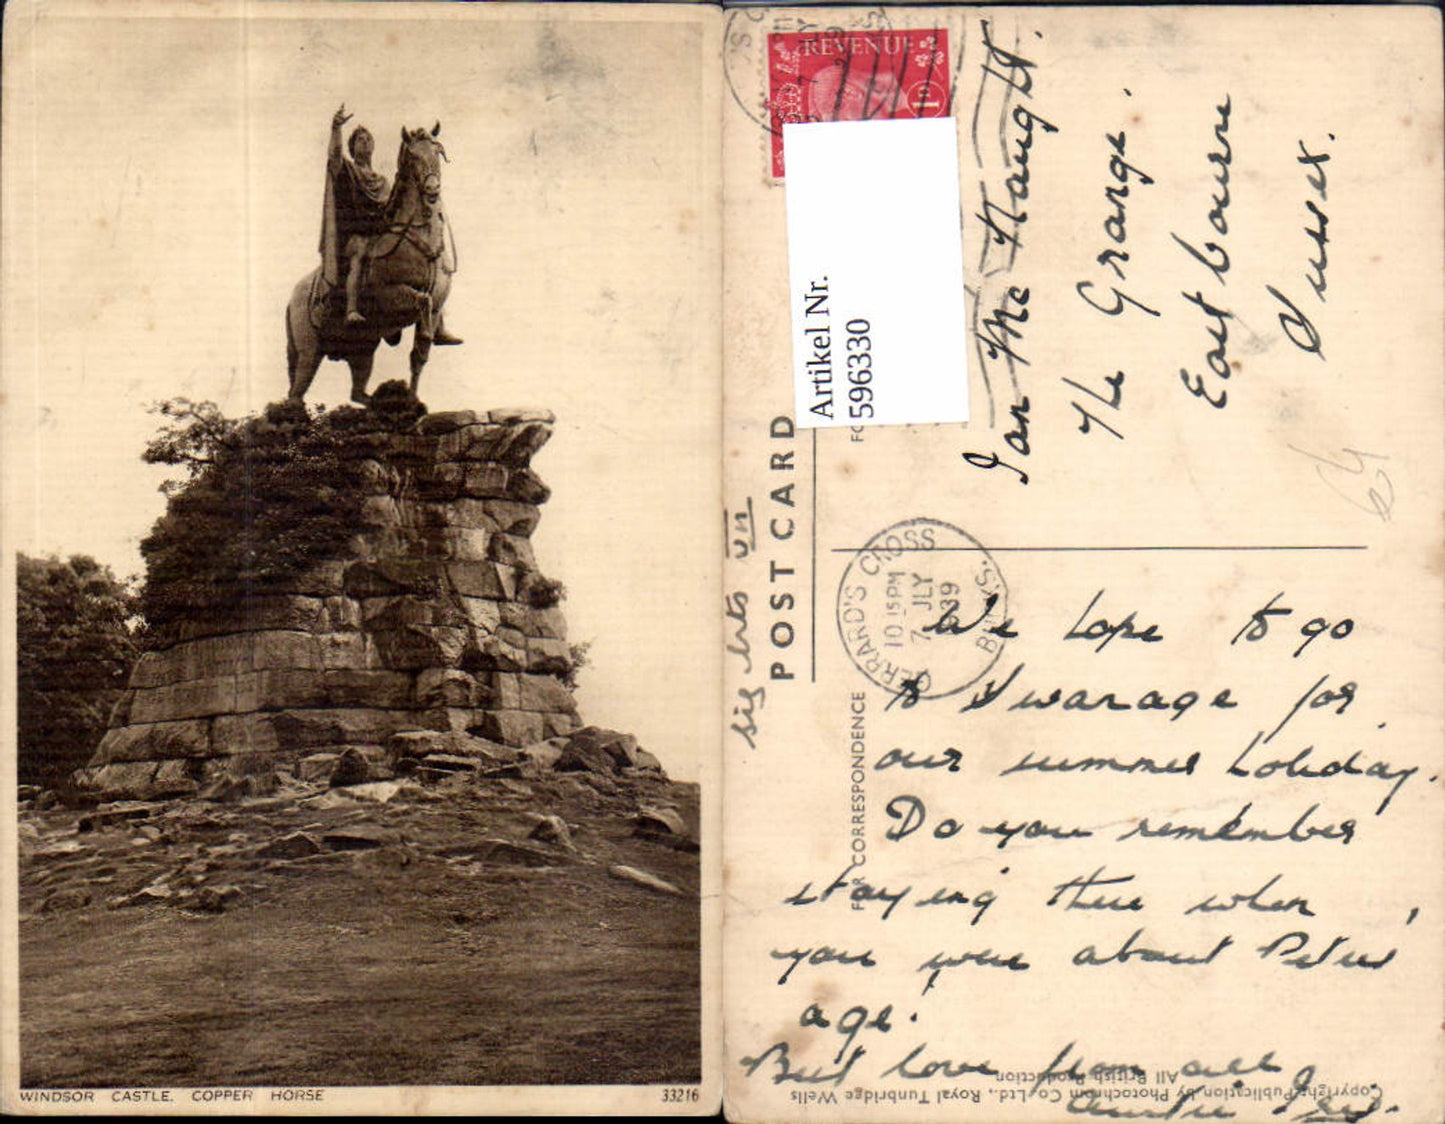 WINDSOR CASTLE. COPPER HORSE
33216
REVENUE
1D
Artikel Nr.
596330
POST CARD
FOR CORRESPONDENCE
GERRARD'S CROSS
10 15 PM
7 JLY
1939
BUCKS.
Ian McNaught.
The Grange.
East bourne
Sussex.
We hope to go
to Swanage for
our summer holiday.
Do you remember
staying there when
you were about Peters
age!
Best love from all
Auntie
Copyright Publication by Photochrom Co. Ltd., Royal Tunbridge Wells
All British Production